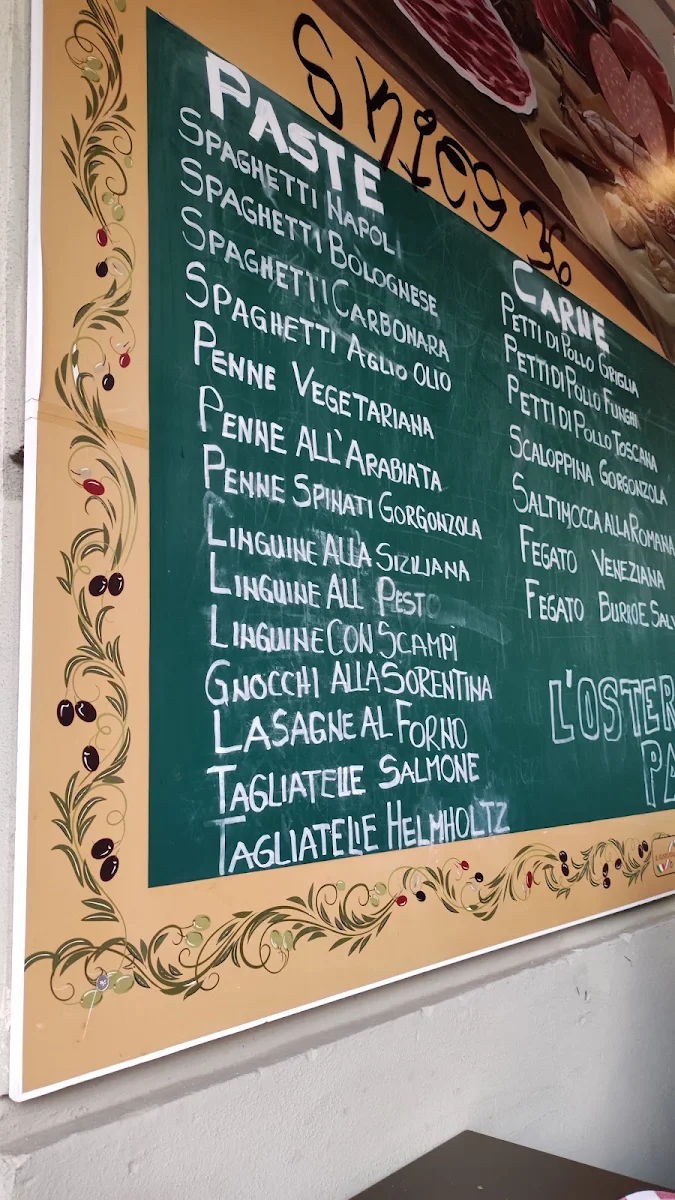 PASTE
SPAGHETTI NAPOLI
SPAGHETTI BOLOGNESE
SPAGHETTI CARBONARA
SPAGHETTI AGLIO OLIO
PENNE VEGETARIANA
PENNE ALL'ARABIATA
PENNE SPINATI GORGONZOLA
LINGUINE ALLA SIZILIANA
LINGUINE ALL PESTO
LINGUINE CON SCAMPI
GNOCCHI ALLA SORENTINA
LASAGNE AL FORNO
TAGLIATELLE SALMONE
TAGLIATELIE HELMHOLTZ
CARNE
PETTI DI POLLO GRIGLIA
PETTI DI POLLO FUNGHI
PETTI DI POLLO TOSCANA
SCALOPPINA GORGONZOLA
SALTIMOCCA ALLA ROMANA
FEGATO VENEZIANA
FEGATO BURRO E SALV
L'OSTER
PA